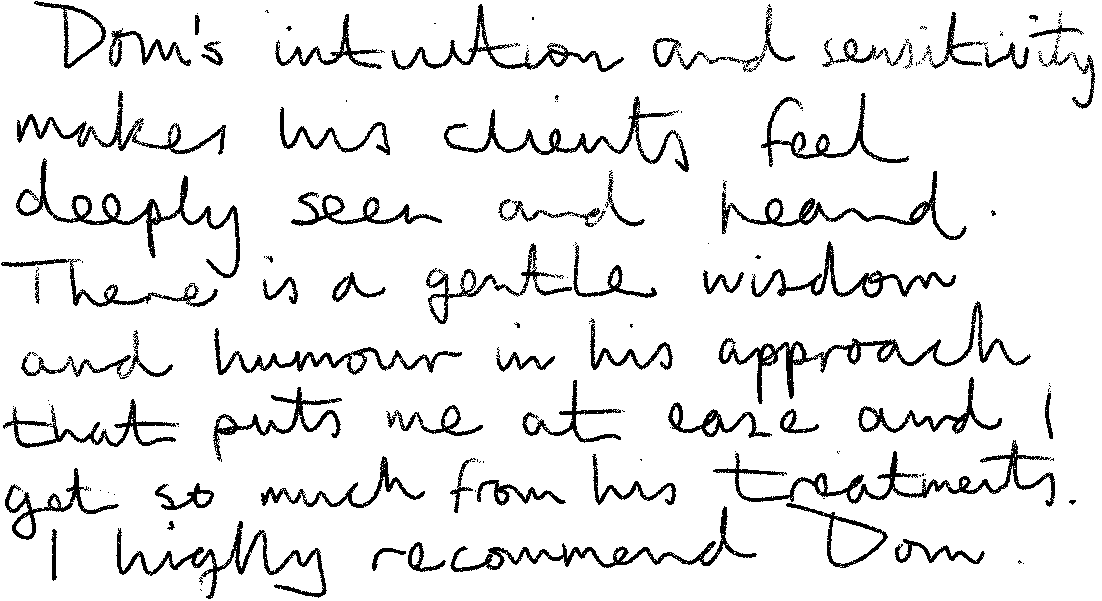 Dom's intuition and sensitivity
makes his clients feel
deeply seen and heard.
There is a gentle wisdom
and humour in his approach
that puts me at ease and I
get so much from his treatments.
I highly recommend Dom.